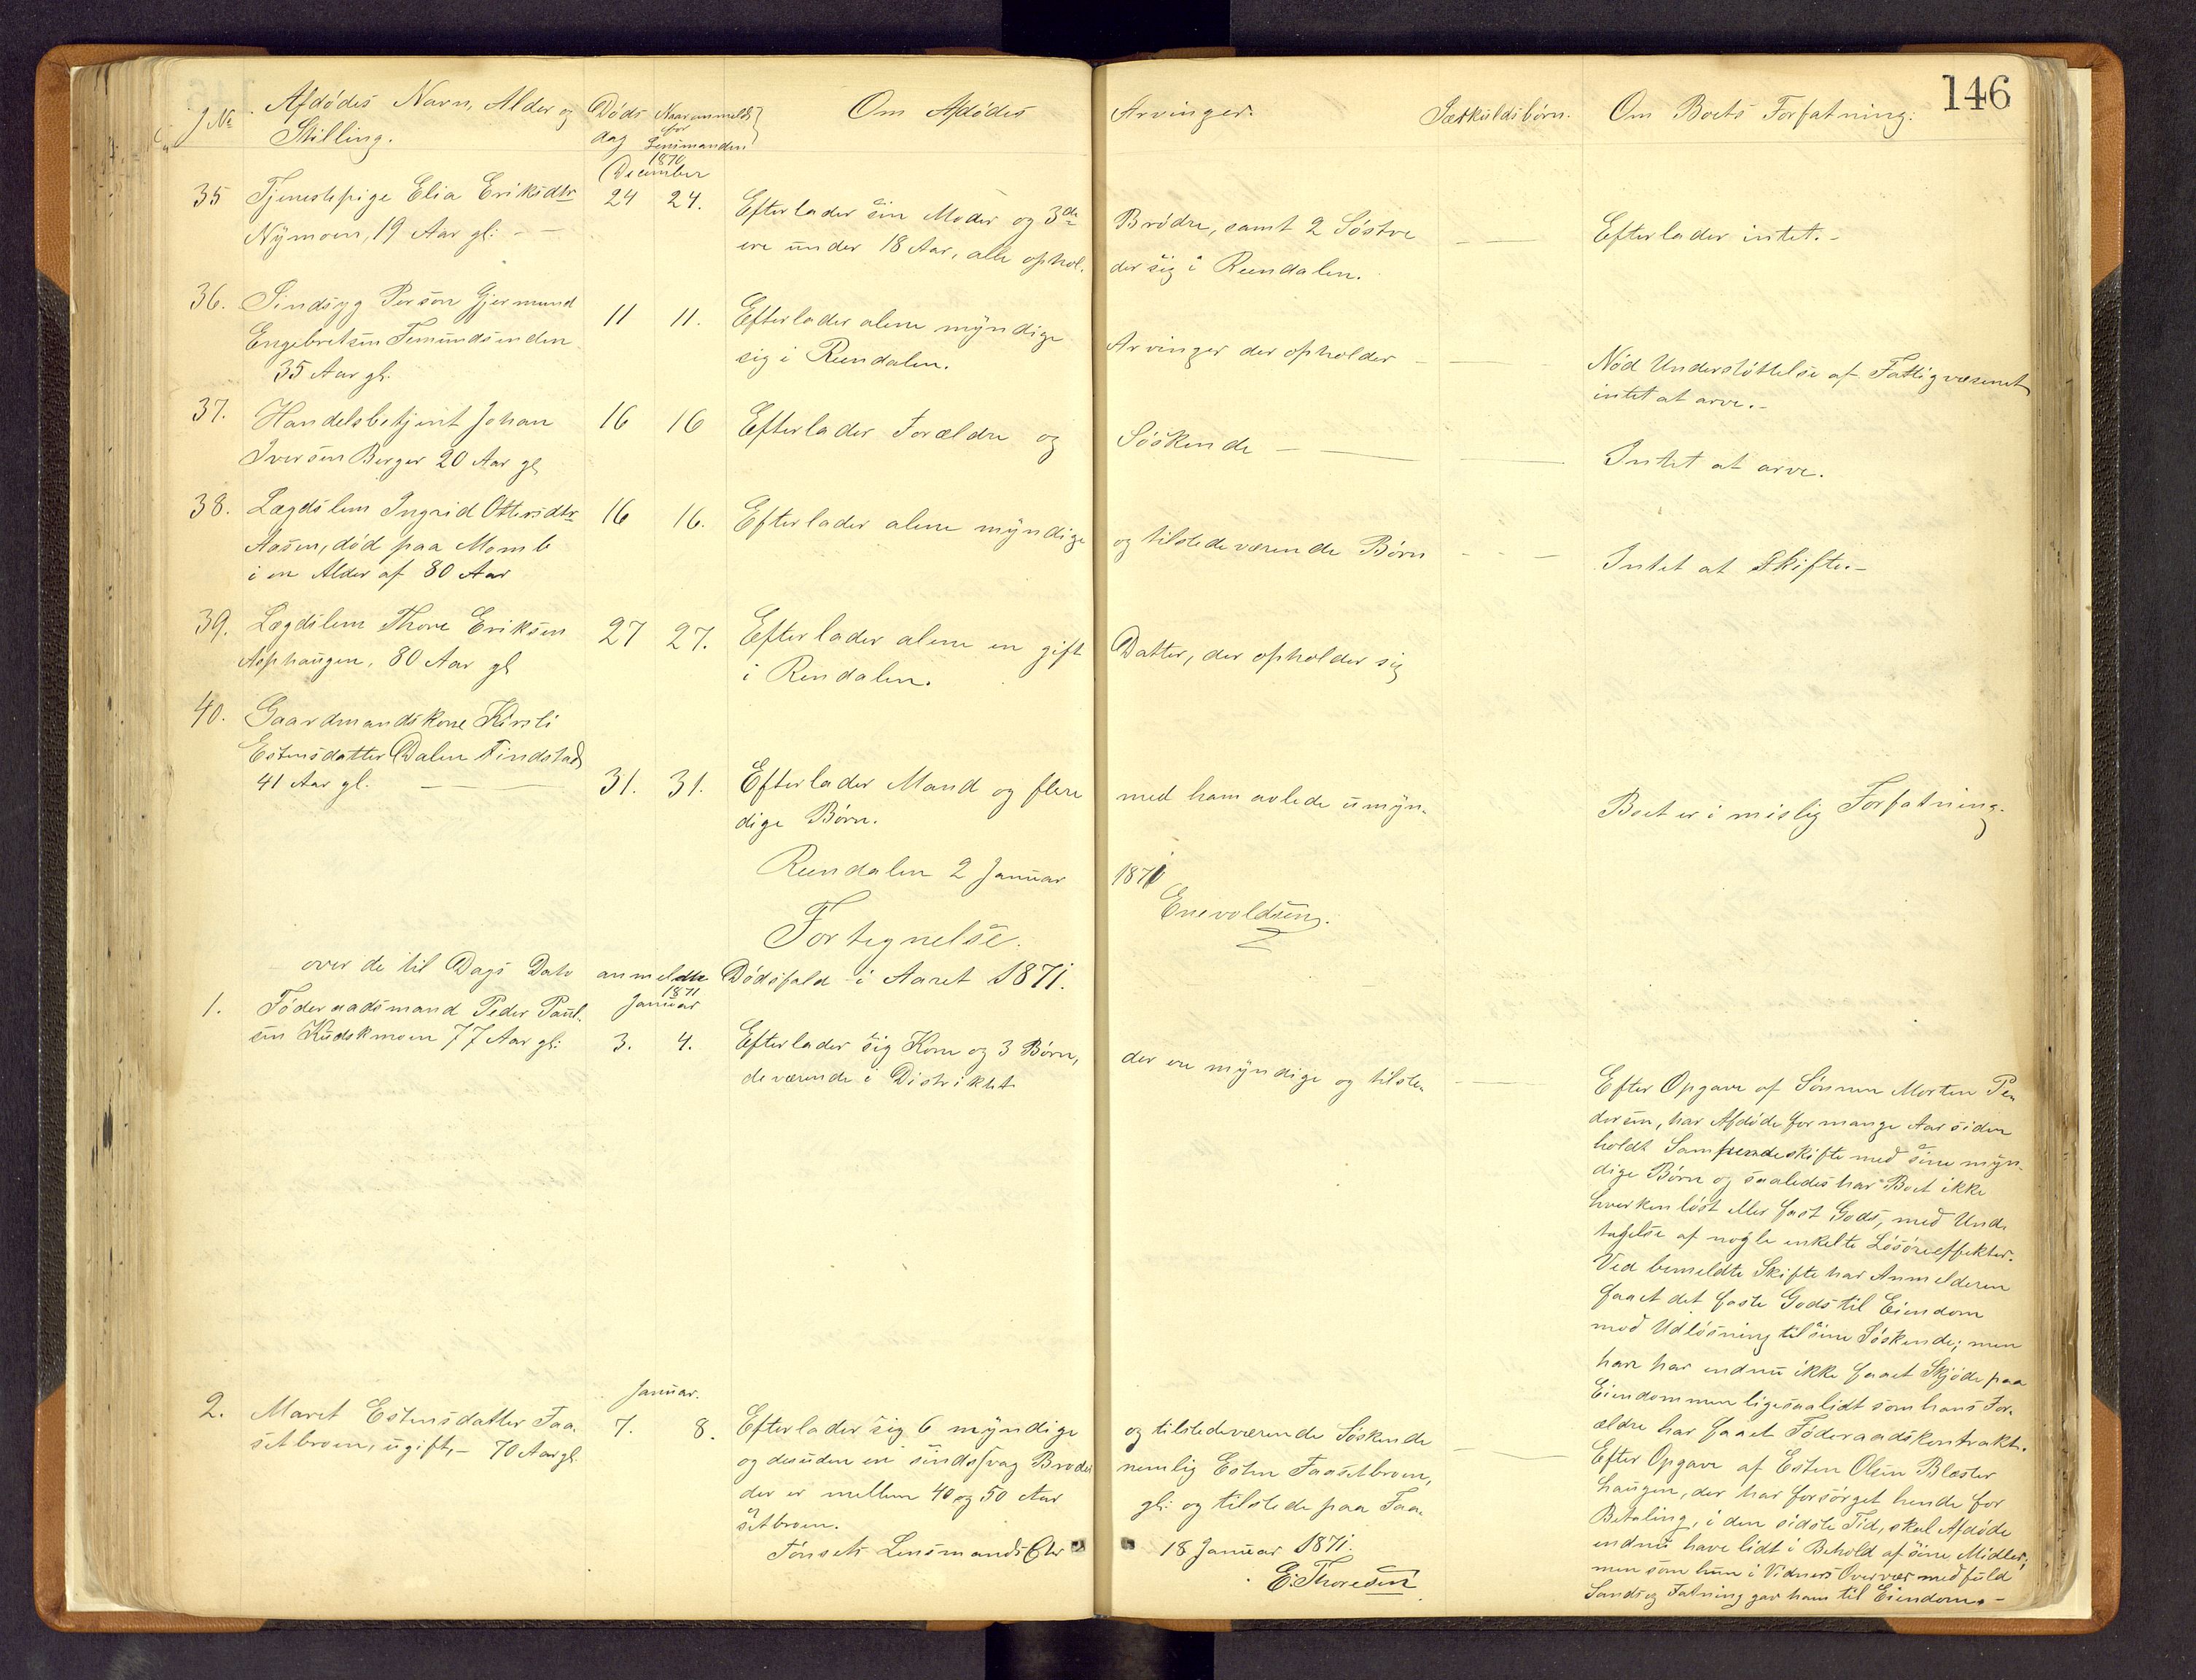 146
J No Afdødes Navn, Alder og Stilling. Døds dag Naar anmeldt for Lensmanden Om Afdødes Arvinger. Særkuldsbørn. Om Boets Forfatning.
1870
December
35 Tjenestepige Elia Eriksdtr 24 24. Efterlader sin Moder og 3de Brødre, samt 2 Søstre — — Efterlader intet.-
Nymoen, 19 Aar gl: - - ere under 18 Aar, alle ophol. der sig i Rendalen.
36. Sindsyg Person Gjermund 11 11. Efterlader alene myndige Arvinger der opholder - — Nød Understøttelse af Fattigvæsenet
Engebretsen Femundsenden sig i Rendalen. intet at arve.-
35 Aar gl.
37. Handelsbetjent Johan 16 16 Efterlader Forældre og Søskende - — — Intet at arve.
Iversen Berger 20 Aar gl
38. Lægdslem Ingrid Ottersdtr 16 16. Efterlader alene myndige og tilstedeværende Børn - - — Intet at Skifte.-
Aasen, død paa Momb
i en Alder af 80 Aar
39. Lægdslem Thore Eriksen 27 27. Efterlader alene en gift Datter, der opholder sig
Asphaugen, 80 Aar gl i Rendalen.
40. Gaardmandskone Kirsti
Estensdatter Dalen Findstad
41 Aar gl. — — 31. 31. Efterlader Mand og flere med ham avlede umyn- Boet er i mislig Forfatning.
dige Børn.
Rendalen 2 Januar 1871
Enevoldsen.
Fortegnelse.
over de til Dags Dato anmeldte Dødsfald i Aaret 1871.
1871
Januar
1. Føderaadsmand Peder Paul-
sen Kudskmoen 77 Aar gl: 3. 4. Efterlader sig Kone og 3 Børn, der ere myndige og tilste-
deværende i Distriktet.
Efter Opgave af Sønnen Morten Pe-
dersen, har Afdøde for mange Aar siden
holdt Samfrændeskifte med sine myn-
dige Børn og saaledes har Boet ikke
hverken løst eller fast Gods, med Und-
tagelse af nogle enkelte Løsøreeffekter.
Ved bemeldte Skifte har Anmelderen
faaet det faste Gods til Eiendom
mod Udløsning til sine Søskende; men
han har endnu ikke faaet Skjøde paa
Eiendommen ligesaalidt som hans For-
ældre har faaet Føderaadskontrakt.
Januar.
2. Maret Estensdatter Faa- 7. 8. Efterlader sig 6 myndige og tilstedeværende Søskende
setbroen, ugift, - 70 Aar gl. og desuden en sindssvag Broder nemlig Esten Faasetbroen,
der er mellem 40 og 50 Aar gl: og tilstede paa Faa-
setbroen.
Efter Opgave af Esten Olsen Blæster
haugen, der har forsørget hende for
Betaling, i den sidste Tid, skal Afdøde
endnu have lidt i Behold af sine Midler;
men som hun i Vidners Overvær med fuld
Sands og Fatning gav ham til Eiendom.-
Tønsets Lensmandsbestr 18 Januar 1871.
E. Thoresen